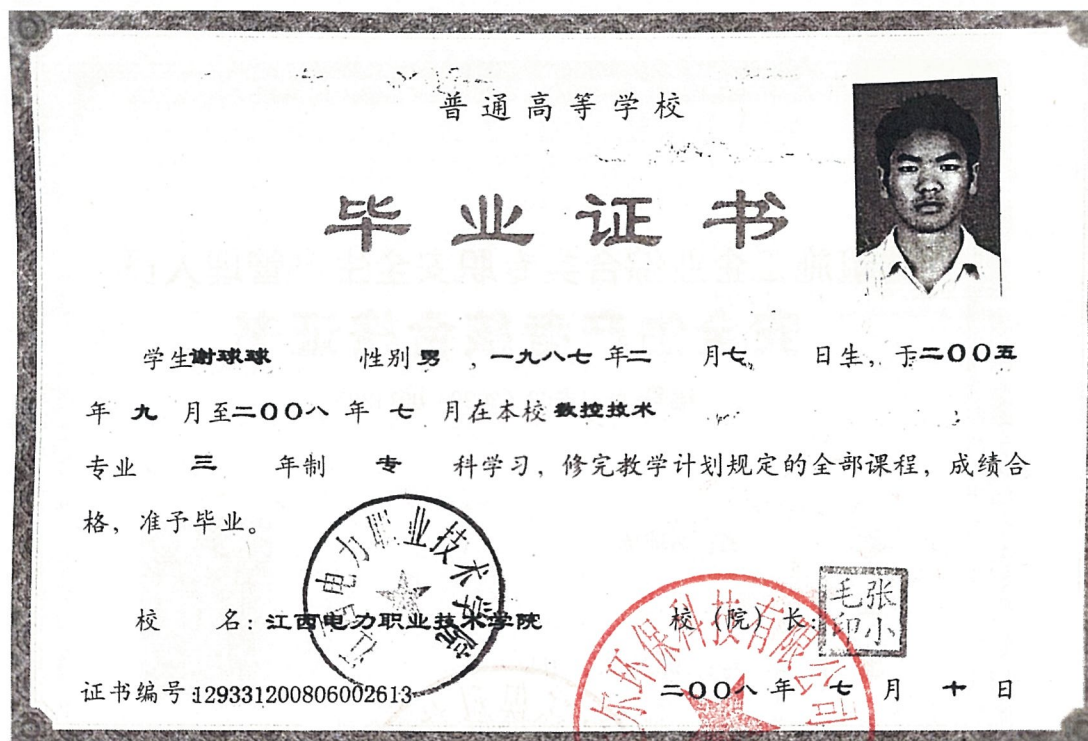 普通高等学校
毕业证书
学生谢球球 性别男，一九八七年二月七日生，于二〇〇五
年九月至二〇〇八年七月在本校数控技术
专业三年制专科学习，修完教学计划规定的全部课程，成绩合
格，准予毕业。
江西电力职业技术学院
校名：江西电力职业技术学院 校（院）长：
张小毛印
尔环保科技有限公司
证书编号:129331200806002613 二〇〇八年七月十日